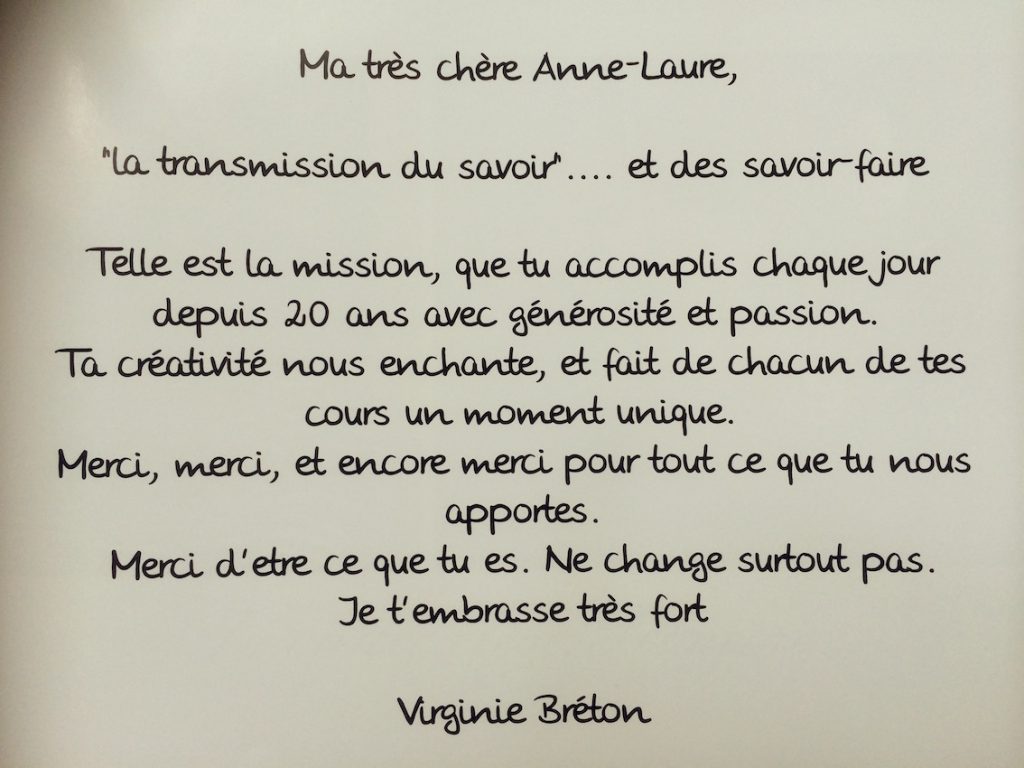 Ma très chère Anne-Laure,
"la transmission du savoir".... et des savoir-faire
Telle est la mission, que tu accomplis chaque jour
depuis 20 ans avec générosité et passion.
Ta créativité nous enchante, et fait de chacun de tes
cours un moment unique.
Merci, merci, et encore merci pour tout ce que tu nous
apportes.
Merci d'etre ce que tu es. Ne change surtout pas.
Je t'embrasse très fort
Virginie Bréton